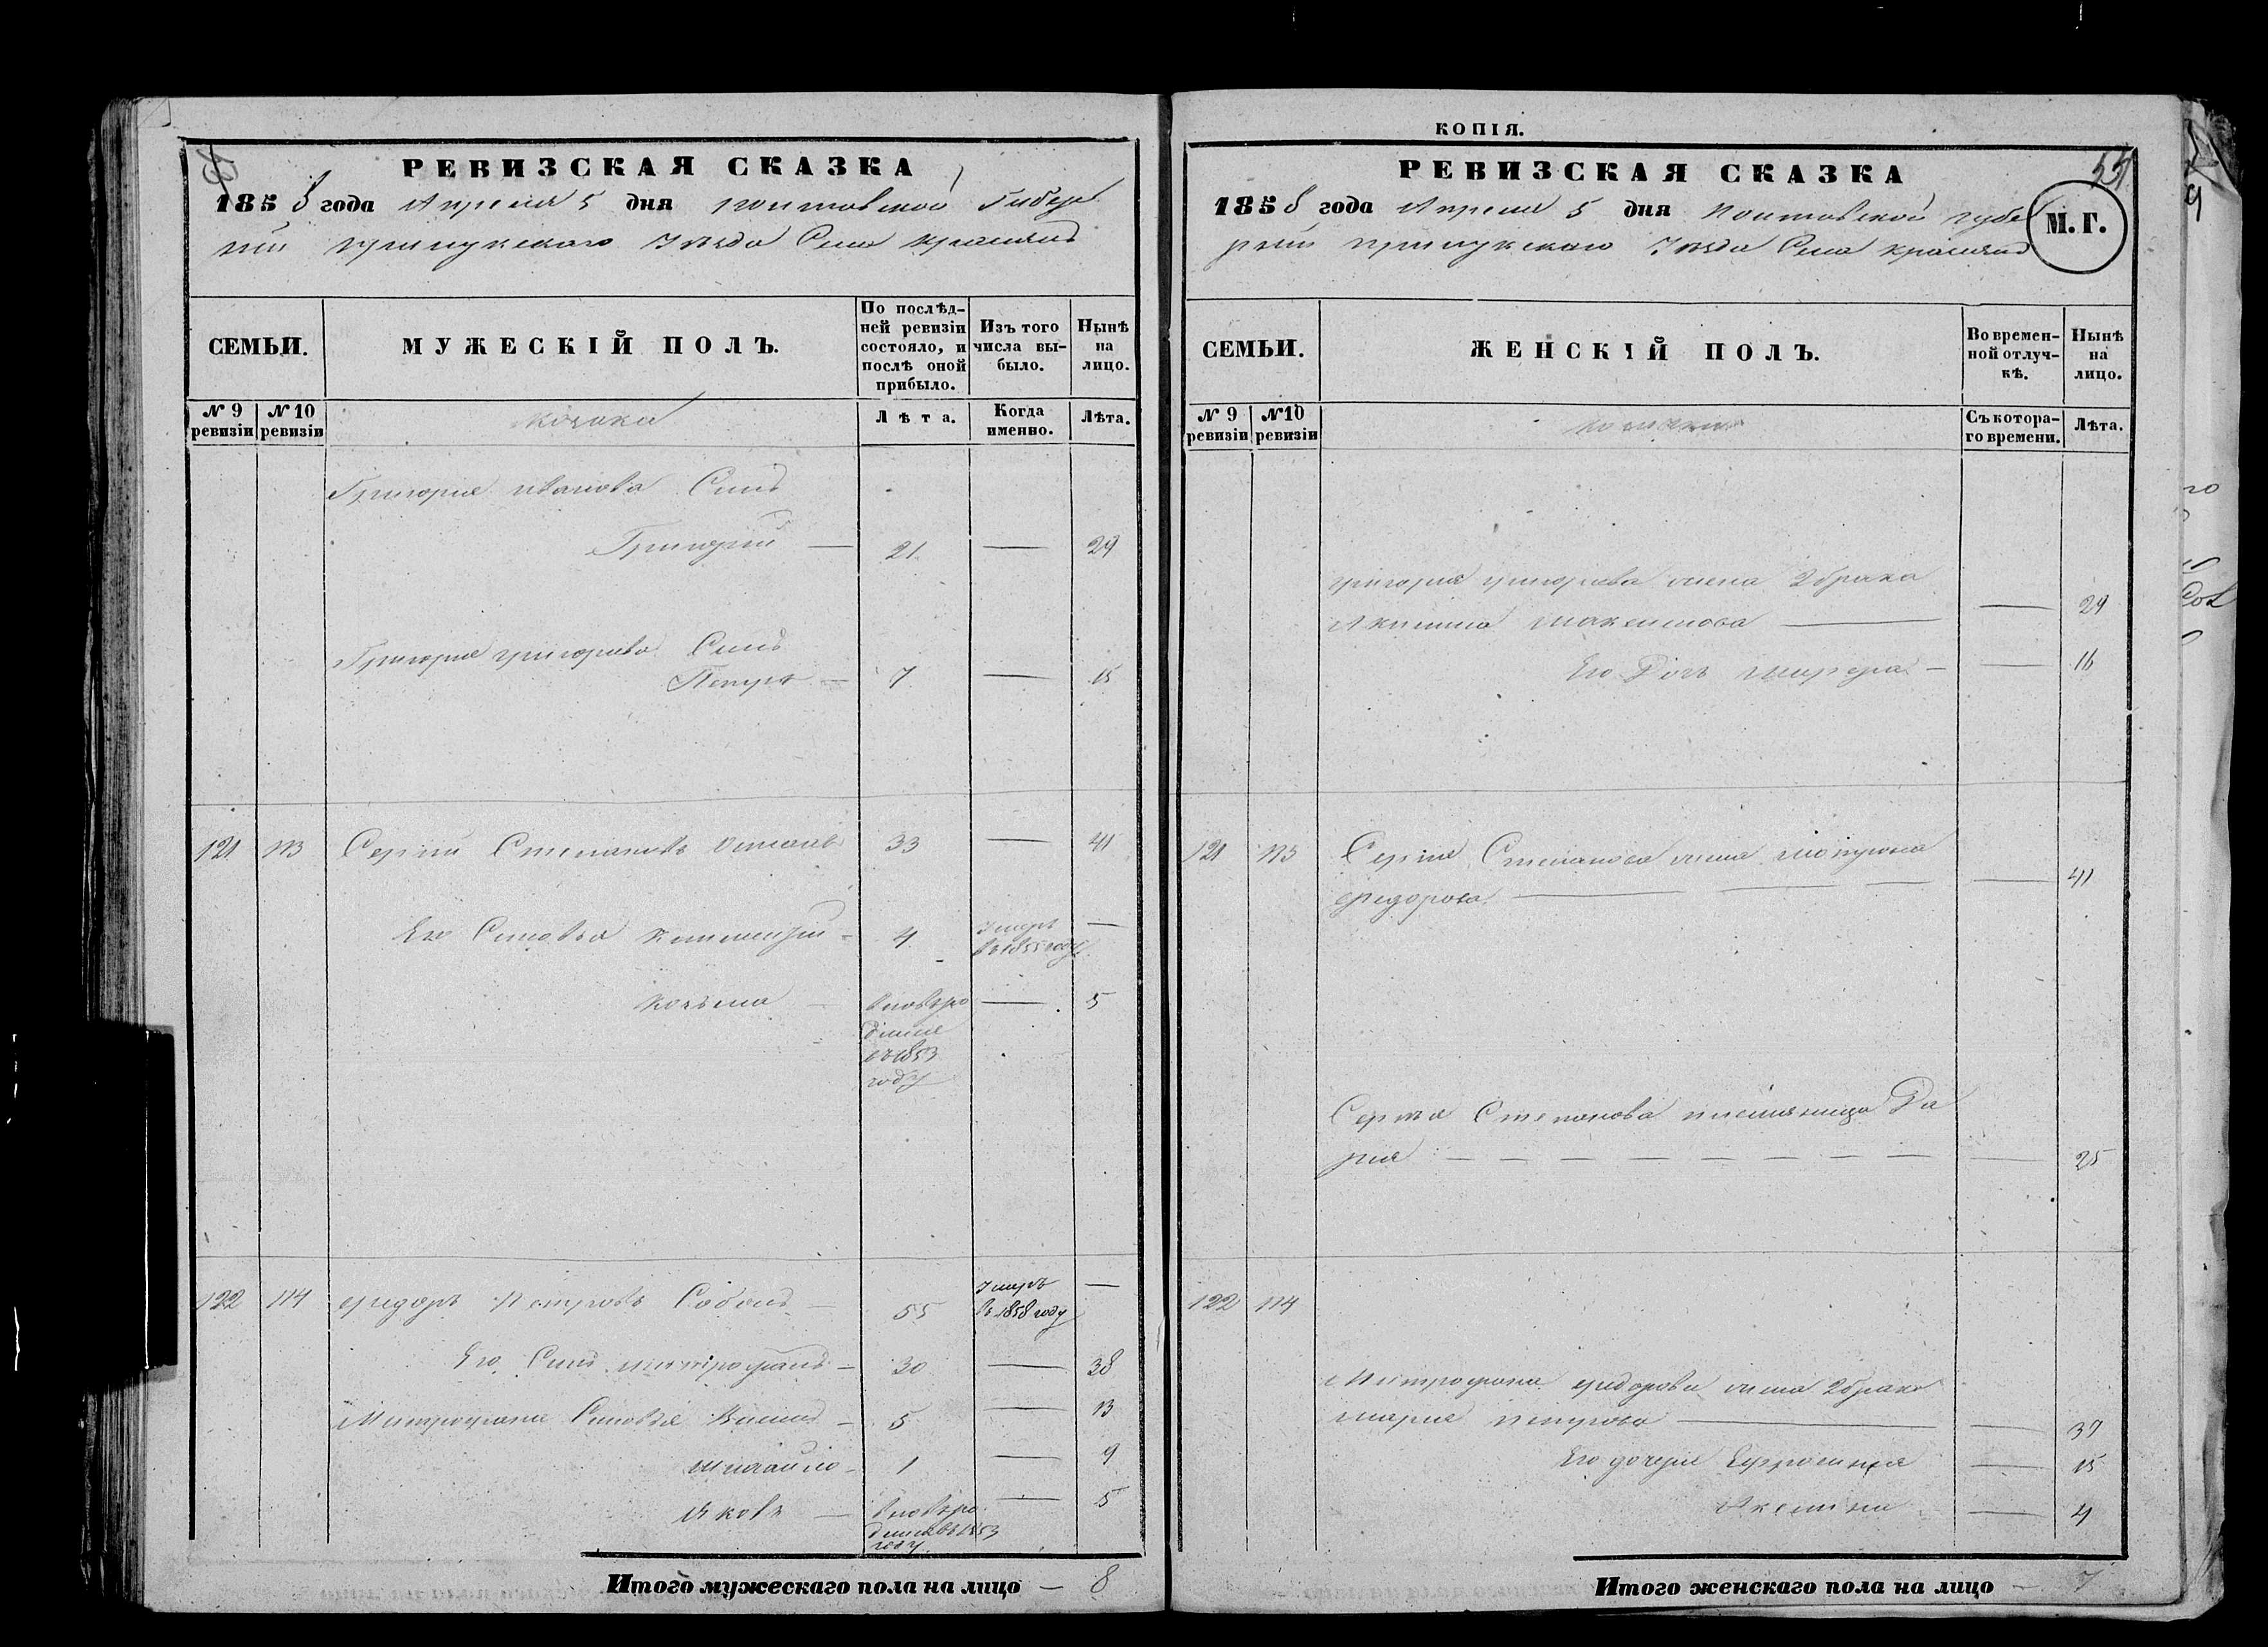 РЕВИЗСКАЯ СКАЗКА
1858 года Апреля 5 дня Полтавской Губер
нии Прилукского Уезда Села Красляно
СЕМЬИ.
МУЖЕСКІЙ ПОЛЪ.
По послѣд-
ней ревизіи
состояло, и
послѣ оной
прибыло.
Изъ того
числа вы-
было.
Нынѣ
на
лицо.
№ 9
ревизіи
№ 10
ревизіи
козаки
Лѣта.
Когда
именно.
Лѣта.
Григория Иванова Сынъ
Григорий — 21 — 29
Григория Григорьева Сынъ
Петръ — 7 — 15
121 113 Сергий Степановъ 33 — 41
Его Сыновья Климентий - 4 Умеръ —
въ 1855 году
Козьма — вновьро — 5
дился
въ 1853
году
122 114 Федоръ Петровъ 55 Умеръ —
въ 1858 году
Его Сынъ Митрофанъ — 30 — 38
Митрофана Сыновья — 5 — 13
Михайло — 1 — 9
Яковъ — вновьро — 5
дился въ 1853
году
Итого мужескаго пола на лицо — 8
КОПІЯ.
РЕВИЗСКАЯ СКАЗКА
55
1858 года Апреля 5 дня Полтавской Губе
рнии Прилукского Уезда Села Красляно
М. Г.
СЕМЬИ.
ЖЕНСКІЙ ПОЛЪ.
Во времен-
ной отлуч-
кѣ.
Нынѣ
на
лицо.
№ 9
ревизіи
№ 10
ревизіи
Съ котора-
го времени.
Лѣта.
Григория Григорьева жена 2 брака
Акилина Максимова — — 29
Его Дочь — — 16
121 113 Сергия Степанова жена
Федорова — — 41
Сергия Степанова племяница Да
рия — — 25
122 114
Митрофана Федорова жена 2 брака
Мария Петрова — — 37
Его дочери Ефросиния — 15
Аксинья — 4
Итого женскаго пола на лицо — 7